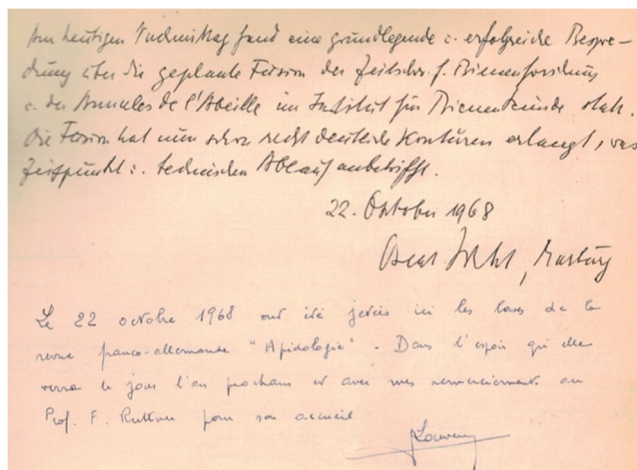 Am heutigen Nachmittag fand eine grundlegende u. erfolgreiche Bespre-
chung über die geplante Fusion der Zeitschr. f. Bienenforschung
u. der Annales de l'Abeille im Institut für Bienenkunde statt.
Die Fusion hat nun schon recht deutliche Konturen erlangt, was
Zeitpunkt u. technischen Ablauf anbetrifft.
22. Oktober 1968
Marburg
Le 22 octobre 1968 ont été jetées ici les bases de la
revue franco-allemande "Apidologie". Dans l'espoir qu'elle
verra le jour l'an prochain et avec mes remerciements au
Prof. F. Ruttner pour son accueil